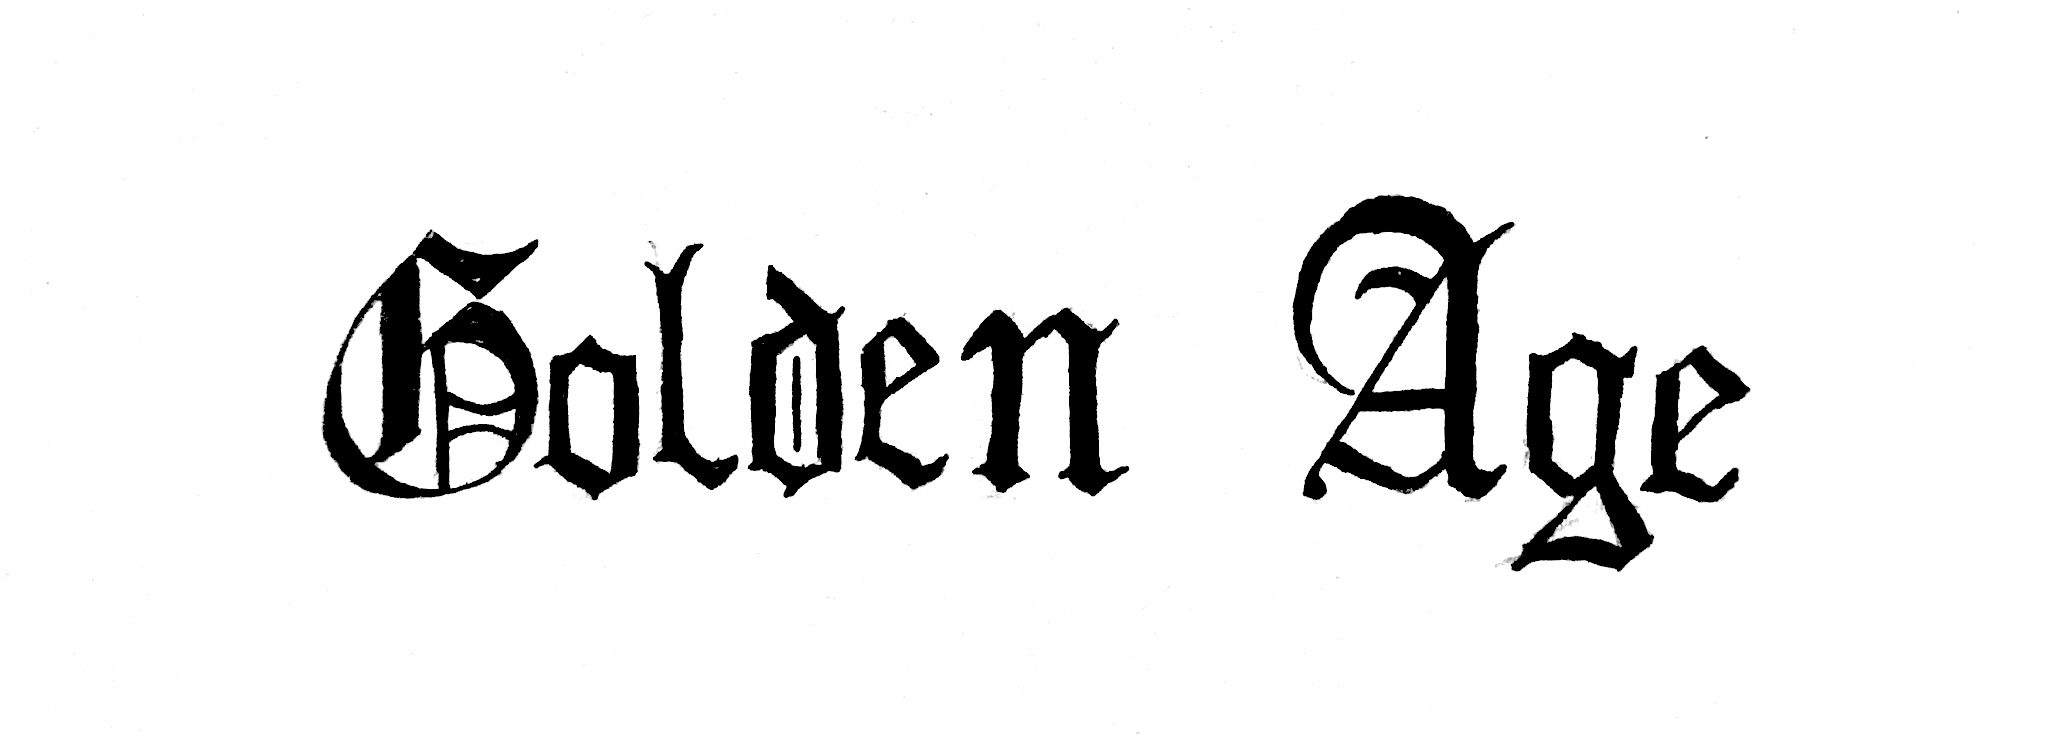 Golden Age